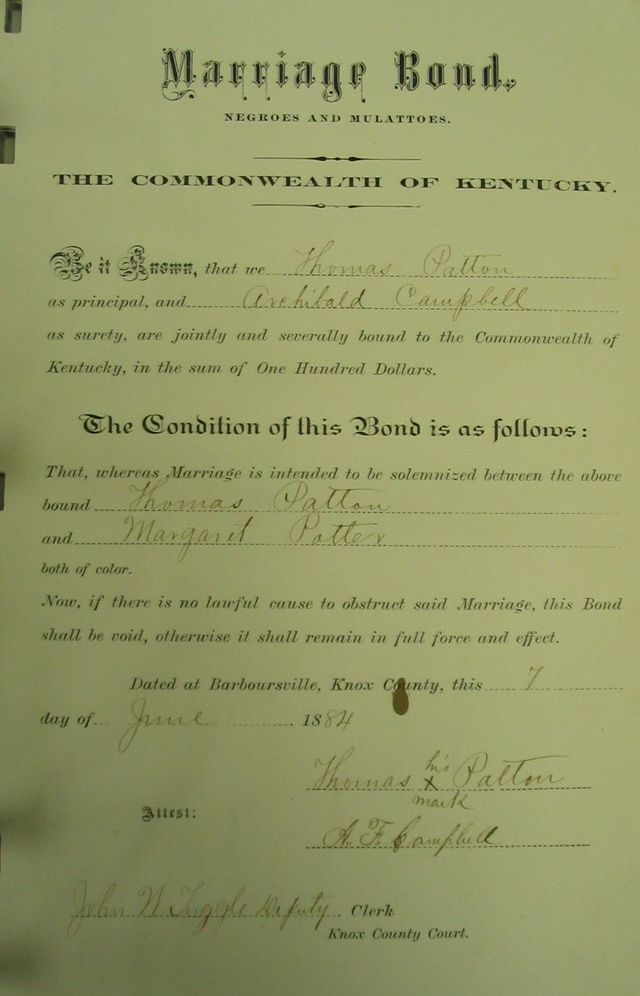 Marriage Bond.
NEGROES AND MULATTOES.
THE COMMONWEALTH OF KENTUCKY.
Be it Known, that we Thomas Patton
as principal, and Archibald Campbell
as surety, are jointly and severally bound to the Commonwealth of
Kentucky, in the sum of One Hundred Dollars.
The Condition of this Bond is as follows:
That, whereas Marriage is intended to be solemnized between the above
bound Thomas Patton
and Margaret Potter
both of color.
Now, if there is no lawful cause to obstruct said Marriage, this Bond
shall be void, otherwise it shall remain in full force and effect.
Dated at Barboursville, Knox County, this 7
day of June 1884
Thomas his x mark Patton
Attest:
A. F. Campbell
John W. Deputy. Clerk
Knox County Court.